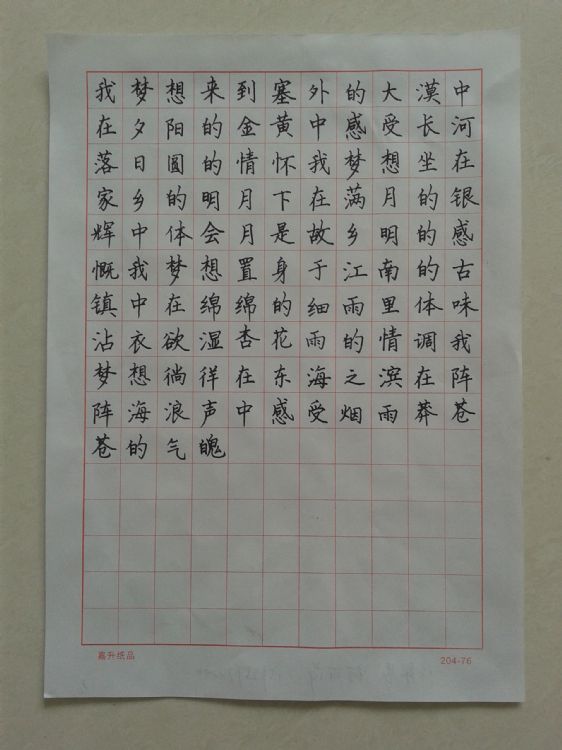 我梦想来到塞外的大漠中
在夕阳的金黄中感受长河
落日圆的情怀我梦想坐在
家乡的明月下在满月的银
辉中体会月是故乡明的感
慨我梦想置身于江南的古
镇中在绵绵的细雨里体味
沾衣欲湿杏花雨的情调我
梦想徜徉在东海之滨在阵
阵海浪声中感受烟雨莽苍
苍的气魄
嘉升纸品
204-76